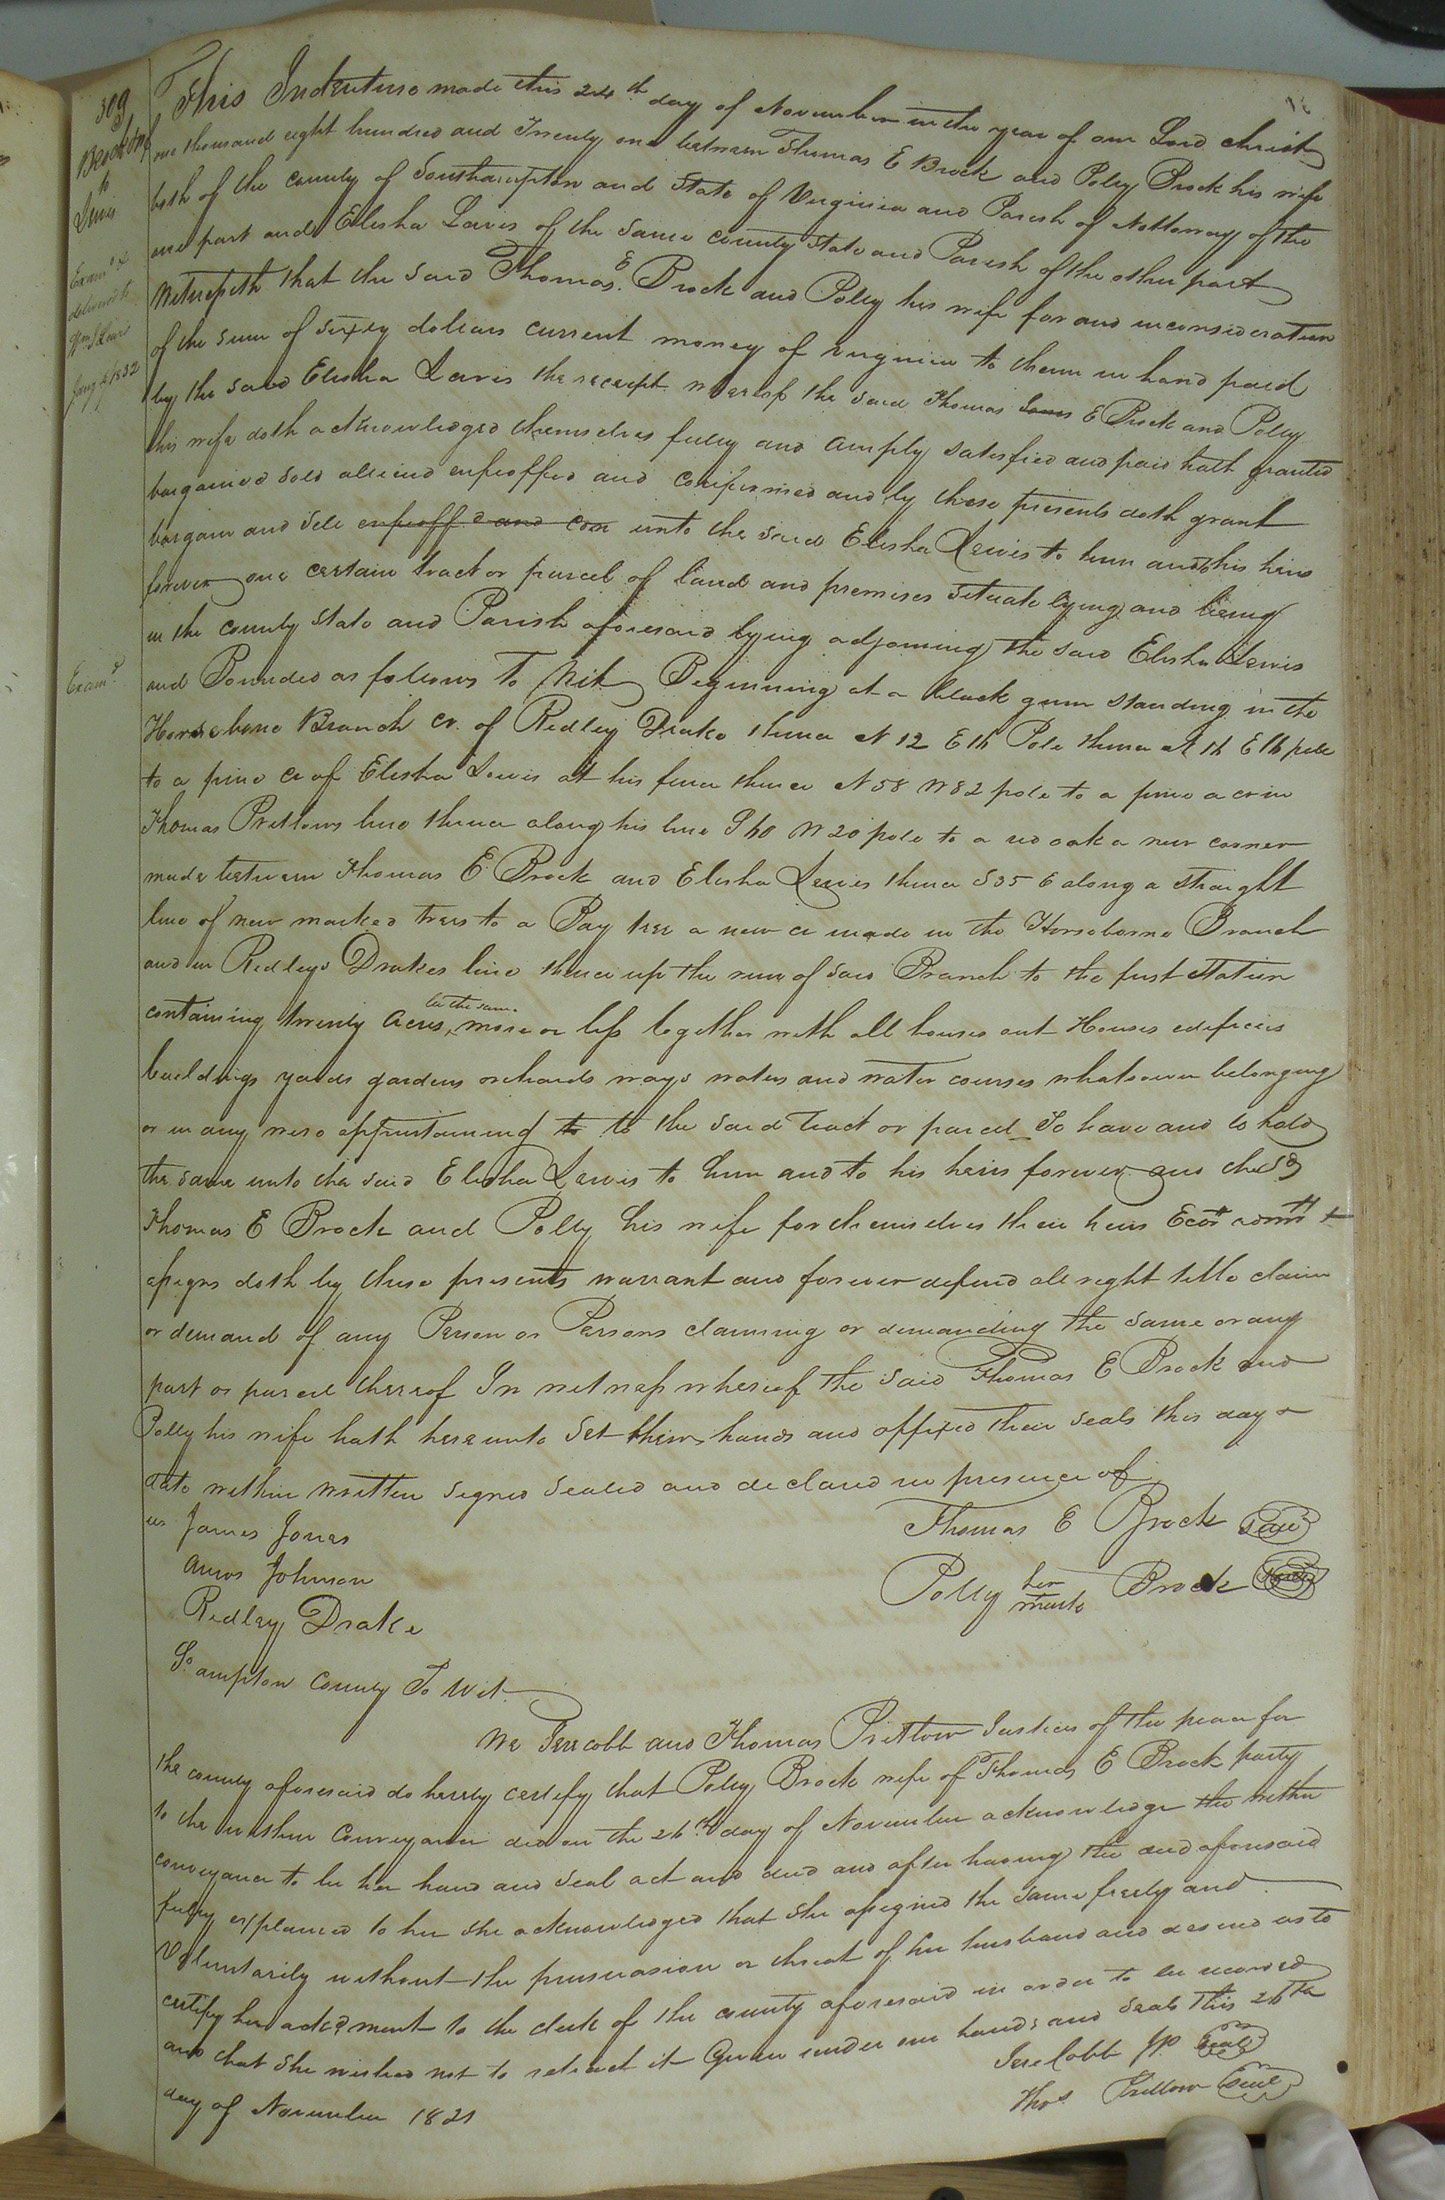 309
Brock & wf
to
Lewis
Exam.d &
delivered to
Wm S Lewis
Jany 4 1832
Exam.d
This Indenture made this 24th day of November in the year of our Lord Christ
one thousand eight hundred and Twenty one between Thomas E Brock and Polly Brock his wife
both of the county of Southampton and State of Virginia and Parish of Nottoway of the
one part and Elisha Lewis of the same county State and Parish of the other part
Witnesseth that the said Thomas E Brock and Polly his wife for and in consideration
of the sum of sixty dollars current money of virginia to them in hand paid
by the said Elisha Lewis the receipt whereof the said Thomas E Brock and Polly
his wife doth acknowledged themselves fully and amply satisfied and paid hath granted
bargained sold aliend enfeoffed and confirmed and by these presents doth grant
bargain and sell enfeoff and con unto the said Elisha Lewis to him and to his heirs
forever one certain tract or parcel of land and premises situate lying and being
in the county State and Parish aforesaid lying adjoining the said Elisha Lewis
and Bounded as follows To Wit Beginning at a black gum standing in the
Horsebone Branch cr. of Ridley Drake thence N 12 E 16 Pole thence N 16 E 16 pole
to a pine cr of Elisha Lewis at his fence thence N 58 W 82 pole to a pine a cr in
Thomas Pretlows line thence along his line S 40 W 20 pole to a red oak a new corner
made between Thomas E Brock and Elisha Lewis thence S 35 E along a straight
line of new marked trees to a Bay tree a new cr made in the Horsebone Branch
and in Ridleys Drakes line thence up the run of said Branch to the first Station
containing twenty Acres, be the same more or less together with all houses out Houses edifices
buildings yards gardens orchards ways waters and water courses whatsoever belonging
or in any wise appertaining to to the said Tract or parcel To have and to hold
the same unto the said Elisha Lewis to him and to his heirs forever and the sd
Thomas E Brock and Polly his wife for themselves their heirs Ecors admrs &
assigns doth by these presents warrant and forever defend all right title claim
or demand of any Person or Persons claiming or demanding the same or any
part or parcel thereof In witness whereof the said Thomas E Brock and
Polly his wife hath hereunto Set their hands and affixed their seals this day &
date within written signed sealed and declared in presence of
us James Jones
Thomas E Brock Seal
Amos Johnson
Polly her mark Brock Seal
Ridley Drake
So ampton County To Wit
We Jere Cobb and Thomas Pretlow Justices of the peace for
the county aforesaid do hereby certify that Polly Brock wife of Thomas E Brock party
to the within Conveyance did on the 26th day of November acknowledge the within
conveyance to be her hand and seal act and deed and after having the deed aforesaid
fully explained to her she acknowledged that she assigned the same freely and
Voluntarily without the persuasion or threat of her husband and desired us to
certify her ackdment to the clerk of the county aforesaid in order to be recorded
and that she wished not to retract it Given under our hands and seals this 26th
day of November 1821
Jere Cobb JP Seal
Thos Pretlow Seal